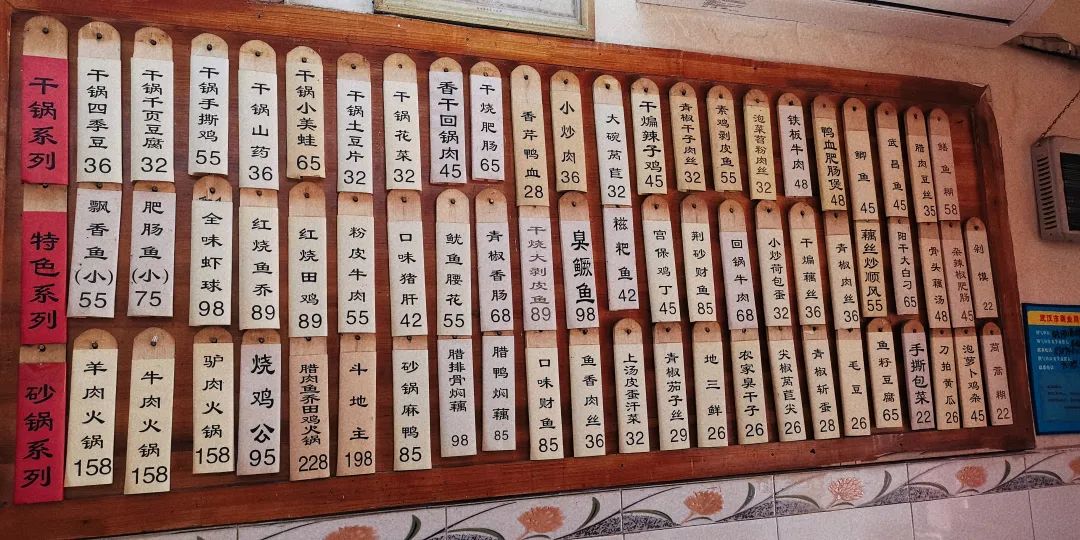 干锅系列
干锅四季豆 36
干锅千页豆腐 32
干锅手撕鸡 55
干锅山药 36
干锅小美蛙 65
干锅土豆片 32
干锅花菜 32
香干回锅肉 45
干烧肥肠 65
香芹鸭血 28
小炒肉 36
大碗莴苣 32
干煸辣子鸡 45
青椒干子肉丝 32
素鸡剥皮鱼 55
泡菜苕粉肉丝 32
铁板牛肉 48
鸭血肥肠煲 48
鲫鱼 45
武昌鱼 45
腊肉豆丝 35
鳝鱼糊 58
特色系列
飘香鱼(小) 55
肥肠鱼(小) 75
全味虾球 98
红烧鱼乔 89
红烧田鸡 89
粉皮牛肉 55
口味猪肝 42
鱿鱼腰花 55
青椒香肠 68
干烧大剥皮鱼 89
臭鳜鱼 98
糍粑鱼 42
宫保鸡丁 45
荆砂财鱼 85
回锅牛肉 68
小炒荷包蛋 32
干煸藕丝 36
青椒肉丝 36
藕丝炒顺风 55
阳干大白刁 65
骨头藕汤 48
杂辣椒肥肠 45
剁馍 22
砂锅系列
羊肉火锅 158
牛肉火锅 158
驴肉火锅 158
烧鸡公 95
腊肉鱼乔田鸡火锅 228
斗地主 198
砂锅麻鸭 85
腊排骨焖藕 98
腊鸭焖藕 85
口味财鱼 85
鱼香肉丝 36
上汤皮蛋汗菜 32
青椒茄子丝 29
地三鲜 26
农家臭干子 26
尖椒莴苣尖 28
青椒斩蛋 28
毛豆 26
鱼籽豆腐 65
手撕包菜 22
刀拍黄瓜 26
泡萝卜鸡杂 45
莴蒿糊 22